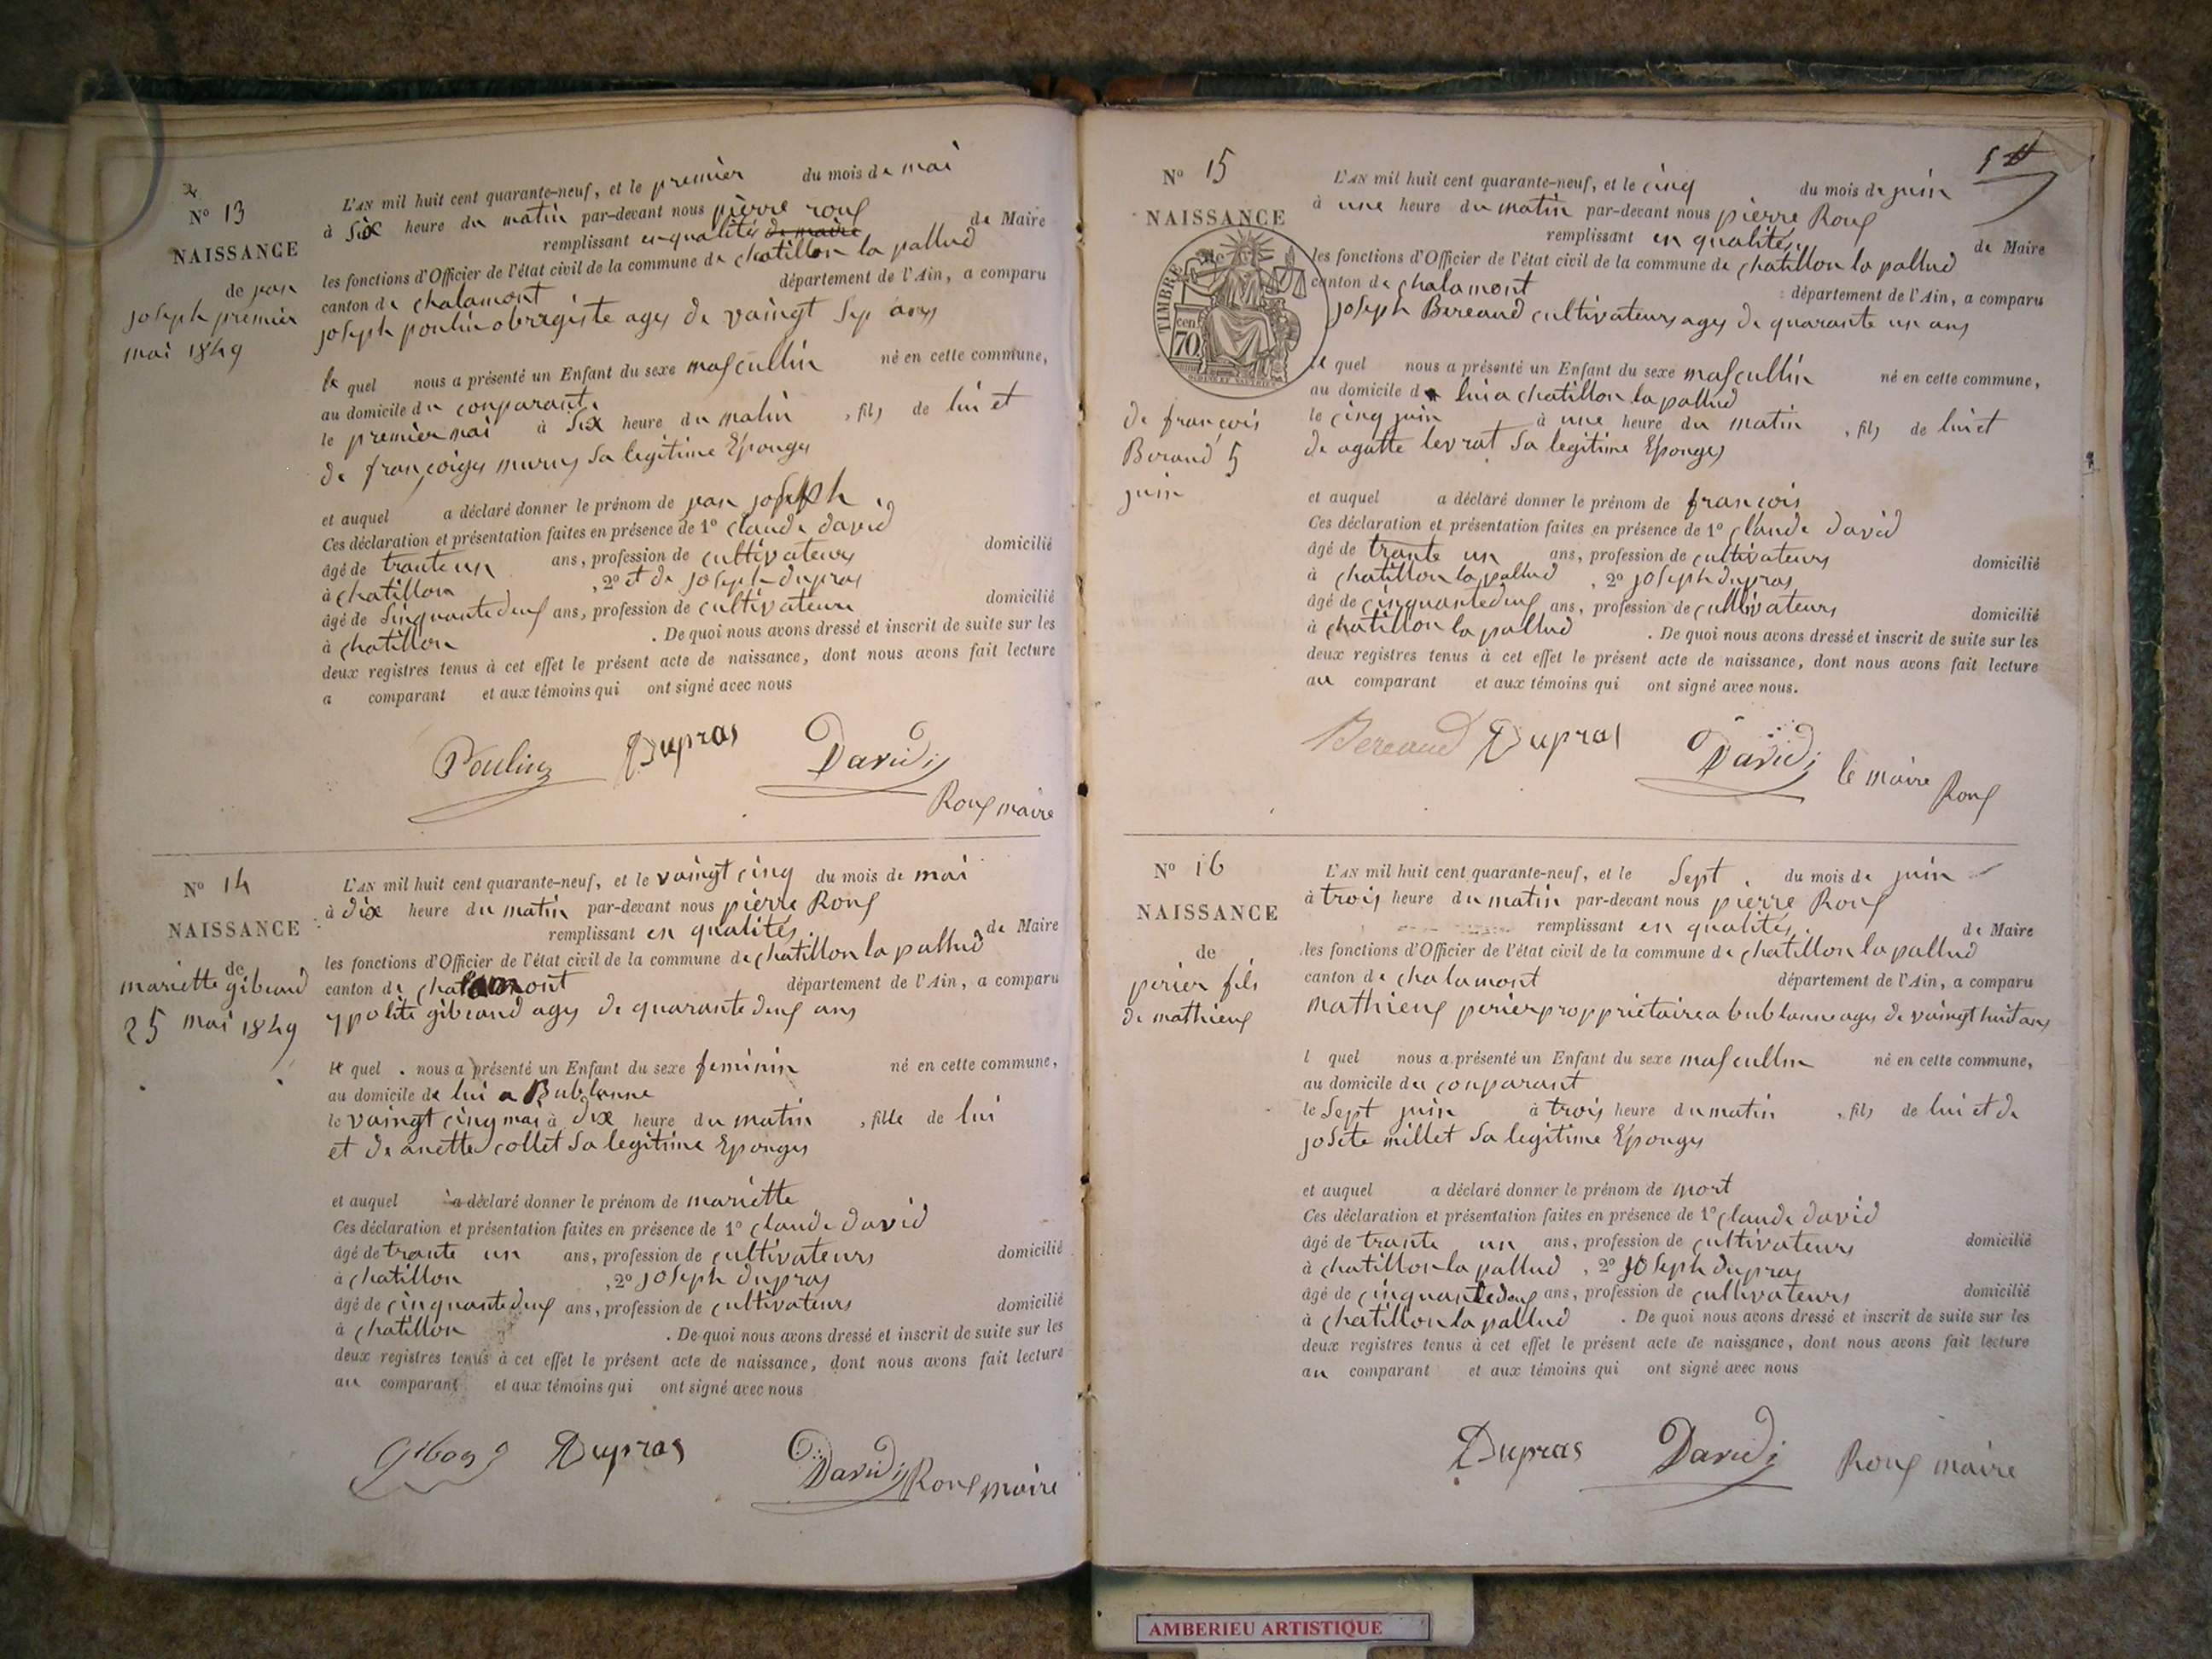 N° 13
NAISSANCE
de jean
joseph premier
mai 1849
L'AN mil huit cent quarante-neuf, et le premier du mois de mai
à six heure du matin par-devant nous pierre roux
de Maire
remplissant en qualités de maire
les fonctions d'Officier de l'état civil de la commune de chatillon la pallud
canton de chalamont département de l'Ain, a comparu
joseph poulin ages de vaingt sep ans
le quel nous a présenté un Enfant du sexe mascullin né en cette commune,
au domicile du conparant
le premier mai à six heure du matin , fils de lui et
de françoises murys sa legitime Eponges
et auquel a déclaré donner le prénom de jean joseph
Ces déclaration et présentation faites en présence de 1° claude david
âgé de trante un ans, profession de cultivateurs domicilié
à chatillon , 2° et de joseph dupras
âgé de sinquante deux ans, profession de cultivateure domicilié
à chatillon . De quoi nous avons dressé et inscrit de suite sur les
deux registres tenus à cet effet le présent acte de naissance, dont nous avons fait lecture
a comparant et aux témoins qui ont signé avec nous
Poulin Dupras David
Roux maire
N° 14
NAISSANCE
de
mariette gibeaud
25 mai 1849
L'AN mil huit cent quarante-neuf, et le vaingt cinq du mois de mai
à dix heure du matin par-devant nous pierre Roux
remplissant en qualités. de Maire
les fonctions d'Officier de l'état civil de la commune de chatillon la pallud
canton de chalamont département de l'Ain, a comparu
ypolite gibeaud ages de quarante deux ans
le quel nous a présenté un Enfant du sexe feminin né en cette commune,
au domicile de lui a Bublanne
le vaingt cinq mai à dix heure du matin , fille de lui
et de anette collet sa legitime Eponges
et auquel a déclaré donner le prénom de mariette
Ces déclaration et présentation faites en présence de 1° claude david
âgé de trante un ans, profession de cultivateurs domicilié
à chatillon , 2° joseph dupras
âgé de cinquante deux ans, profession de cultivateurs domicilié
à chatillon . De quoi nous avons dressé et inscrit de suite sur les
deux registres tenus à cet effet le présent acte de naissance, dont nous avons fait lecture
au comparant et aux témoins qui ont signé avec nous
Dupras David Roux maire
N° 15
NAISSANCE
TIMBRE
cen.
70
de françois
Beraud 5
juin
L'AN mil huit cent quarante-neuf, et le cinq du mois de juin
à une heure du matin par-devant nous pierre Roux
remplissant en qualités. de Maire
les fonctions d'Officier de l'état civil de la commune de chatillon la pallud
canton de chalamont département de l'Ain, a comparu
joseph Bereaud cultivateurs ages de quarante un ans
le quel nous a présenté un Enfant du sexe mascullin né en cette commune,
au domicile de lui a chatillon la pallud
le cinq juin à une heure du matin , fils de lui et
de agatte levrat sa legitime Eponges
et auquel a déclaré donner le prénom de françois
Ces déclaration et présentation faites en présence de 1° claude david
âgé de trante un ans, profession de cultivateurs domicilié
à chatillon la pallud , 2° joseph dupras
âgé de cinquante deux ans, profession de cultivateurs domicilié
à chatillon la pallud . De quoi nous avons dressé et inscrit de suite sur les
deux registres tenus à cet effet le présent acte de naissance, dont nous avons fait lecture
au comparant et aux témoins qui ont signé avec nous.
Bereaud Dupras David le maire Roux
N° 16
NAISSANCE
de
perier fils
de mathieux
L'AN mil huit cent quarante-neuf, et le sept du mois de juin
à trois heure du matin par-devant nous pierre Roux
remplissant en qualités. de Maire
les fonctions d'Officier de l'état civil de la commune de chatillon la pallud
canton de chalamont département de l'Ain, a comparu
mathieux perier proppriétaire a bublanne ages de vaingt huit ans
l quel nous a présenté un Enfant du sexe mascullin né en cette commune,
au domicile du conparant
le sept juin à trois heure du matin , fils de lui et de
josete millet sa legitime Eponges
et auquel a déclaré donner le prénom de mort
Ces déclaration et présentation faites en présence de 1° claude david
âgé de trante un ans, profession de cultivateurs domicilié
à chatillon la pallud , 2° joseph dupras
âgé de cinquante deux ans, profession de cultivateurs domicilié
à chatillon la pallud . De quoi nous avons dressé et inscrit de suite sur les
deux registres tenus à cet effet le présent acte de naissance, dont nous avons fait lecture
au comparant et aux témoins qui ont signé avec nous
Dupras David Roux maire
AMBERIEU ARTISTIQUE